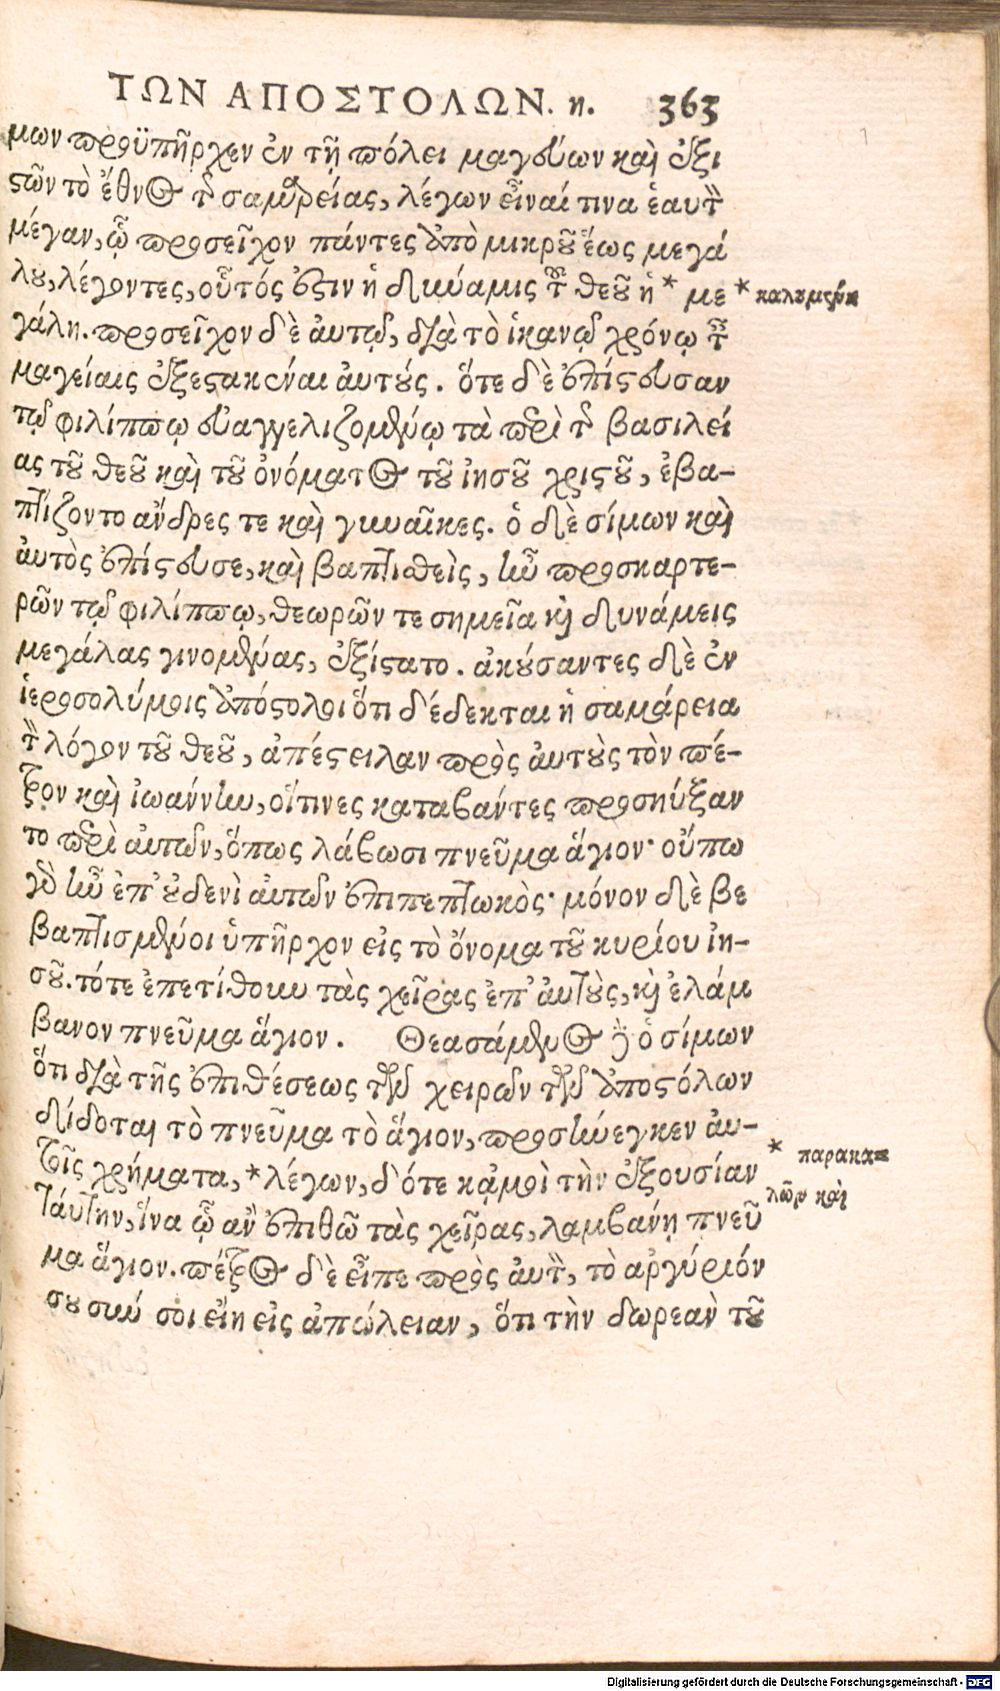 ΤΩΝ ΑΠΟΣΤΟΛΩΝ. η. 363
μων προϋπῆρχεν ἐν τῇ πόλει μαγεύων καὶ ἐξι
στῶν τὸ ἔθνος τῆς σαμαρείας, λέγων εἶναί τινα ἑαυτὸν
μέγαν, ᾧ προσεῖχον πάντες ἀπὸ μικροῦ ἕως μεγά
λου, λέγοντες, οὗτός ἐστιν ἡ δύναμις τοῦ θεοῦ ἡ * με * καλουμένη
γάλη. προσεῖχον δὲ ἀυτῷ, διὰ τὸ ἱκανῷ χρόνῳ ταῖς
μαγείαις ἐξεστακέναι ἀυτούς. ὅτε δὲ ἐπίστευσαν
τῷ φιλίππῳ εὐαγγελιζομένῳ τὰ περὶ τῆς βασιλεί
ας τοῦ θεοῦ καὶ τοῦ ὀνόματος τοῦ ἰησοῦ χριστοῦ, ἐβα-
πτίζοντο ἄνδρες τε καὶ γυναῖκες. ὁ δὲ σίμων καὶ
ἀυτὸς ἐπίστευσε, καὶ βαπτισθεὶς, ἦν προσκαρτε-
ρῶν τῷ φιλίππῳ, θεωρῶν τε σημεῖα καὶ δυνάμεις
μεγάλας γινομένας, ἐξίστατο. ἀκούσαντες δὲ ἐν
ἱεροσολύμοις ἀπόστολοι ὅτι δέδεκται ἡ σαμάρεια
τὸν λόγον τοῦ θεοῦ, ἀπέστειλαν πρὸς ἀυτοὺς τὸν πέ-
τρον καὶ ἰωάννην, οἵτινες καταβάντες προσηύξαν
το περὶ αὐτῶν, ὅπως λάβωσι πνεῦμα ἅγιον· οὔπω
γὰρ ἦν ἐπ' οὐδενὶ αὐτῶν ἐπιπεπτωκὸς· μόνον δὲ βε
βαπτισμένοι ὑπῆρχον εἰς τὸ ὄνομα τοῦ κυρίου ἰη-
σοῦ. τότε ἐπετίθουν τὰς χεῖρας ἐπ' ἀυτοὺς, καὶ ἐλάμ
βανον πνεῦμα ἅγιον. Θεασάμενος δὲ ὁ σίμων
ὅτι διὰ τῆς ἐπιθέσεως τῶν χειρῶν τῶν ἀποστόλων
δίδοται τὸ πνεῦμα τὸ ἅγιον, προσήνεγκεν ἀυ-
τοῖς χρήματα, * λέγων, δότε κᾀμοὶ τὴν ἐξουσίαν * παρακα=
λῶν καὶ
ταύτην, ἵνα ᾧ ἂν ἐπιθῶ τὰς χεῖρας, λαμβάνῃ πνεῦ
μα ἅγιον. πέτρος δὲ εἶπε πρὸς ἀυτὸν, τὸ ἀργύριόν
σου σὺν σοι εἴη εἰς ἀπώλειαν, ὅτι τὴν δωρεὰν τοῦ
Digitalisierung gefördert durch die Deutsche Forschungsgemeinschaft - DFG